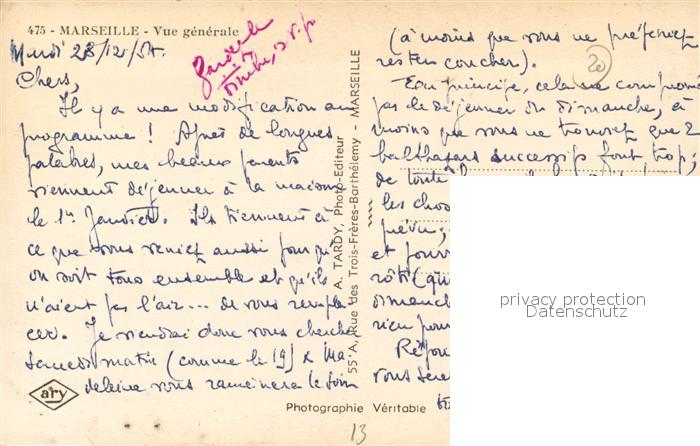 475 - MARSEILLE - Vue générale
Mardi 28/12/54.
Chers,
Il y a une modification au
programme ! Après de longues
palabres, mes beaux parents
viennent déjeuner à la maison
le 1er Janvier. Ils tiennent à
ce que vous veniez aussi pour qu'
on soit tous ensemble et qu'ils
n'aient pas l'air... de vous rempla
cer. Je viendrai donc vous chercher
Samedi matin (comme le 19) & Ma
deleine vous ramènera le soir
ary
A. TARDY, Photo-Editeur
55 A, Rue des Trois-Frères-Barthélemy - MARSEILLE
Photographie Véritable
13
(à moins que vous ne préfériez
rester coucher).
20
En principe, cela ne compromet
pas le déjeuner du dimanche, à
moins que vous ne trouviez que 2
balthazars successifs font trop ;
de toute
les chos
prévu ;
et pour
rôti (qu
dimanch
rien pour
vous sere
privacy protection
Datenschutz